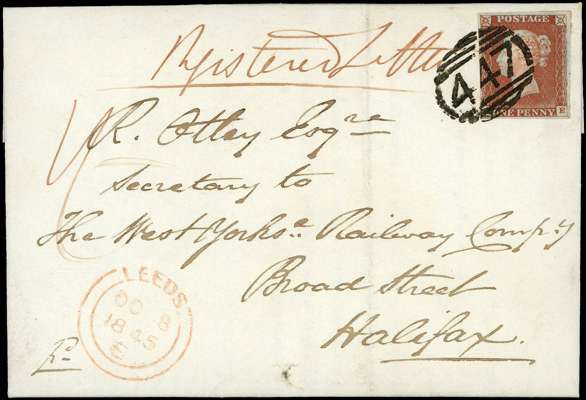 Registered Letter
POSTAGE
447
E
ONE PENNY
R. Ottey Esqre
Secretary to
The West Yorkse. Railway Compy
Broad Street
Halifax.
LEEDS
OC 8
1845
E